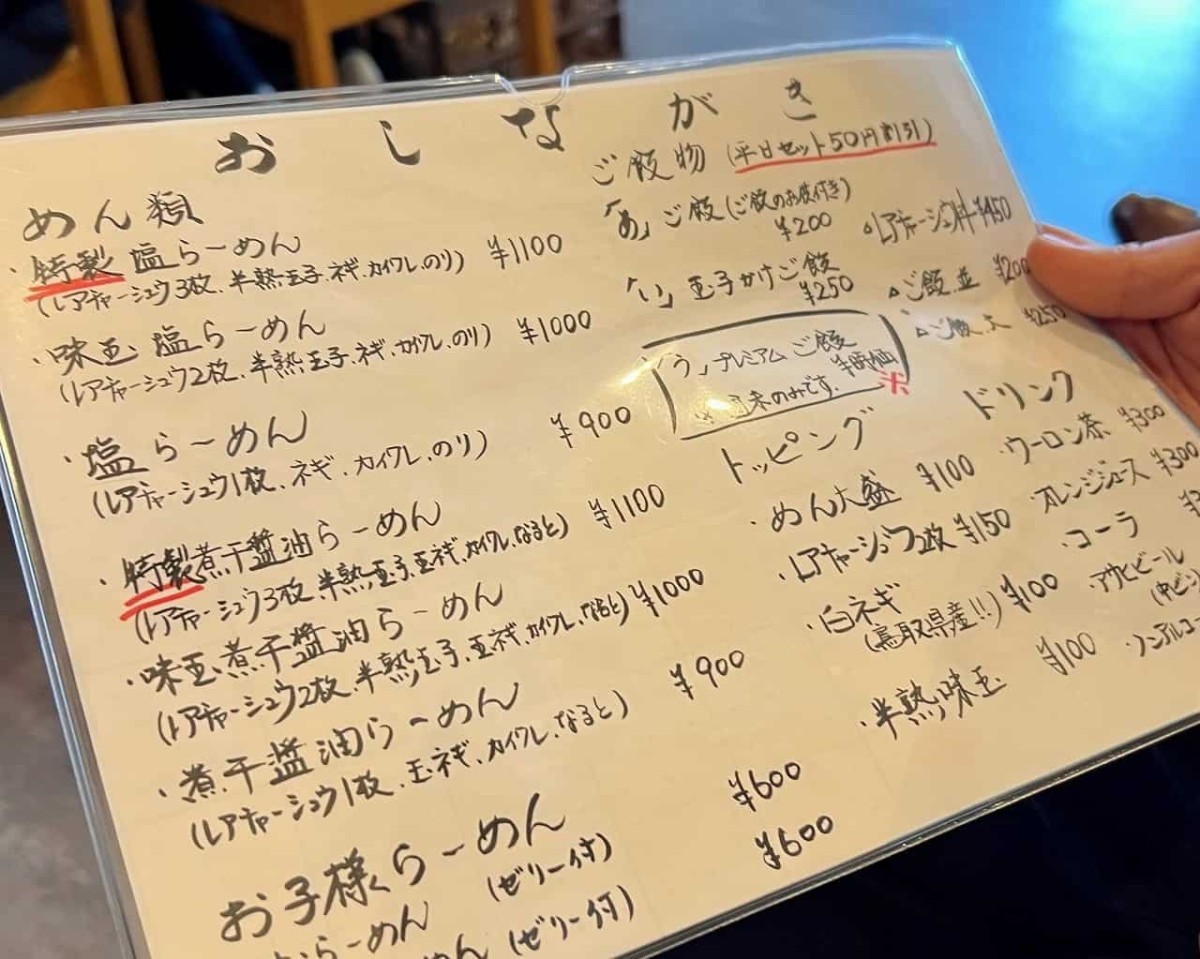 おしながき
めん類
・特製 塩らーめん ¥1100
(レアチャーシュウ3枚、半熟玉子、ネギ、カイワレ、のり)
・味玉 塩らーめん ¥1000
(レアチャーシュウ2枚、半熟玉子、ネギ、カイワレ、のり)
・塩らーめん ¥900
(レアチャーシュウ1枚、ネギ、カイワレ、のり)
・特製煮干醤油らーめん ¥1100
(レアチャーシュウ3枚、半熟玉子、玉ネギ、カイワレ、なると)
・味玉煮干醤油らーめん ¥1000
(レアチャーシュウ2枚、半熟玉子、玉ネギ、カイワレ、なると)
・煮干醤油らーめん ¥900
(レアチャーシュウ1枚、玉ネギ、カイワレ、なると)
お子様らーめん
らーめん (ゼリー付) ¥600
めん (ゼリー付) ¥600
ご飯物 (平日セット50円割引)
「あ」ご飯(ご飯のお供付き)
¥200
「い」玉子かけご飯
¥250
「う」プレミアムご飯
※ 末のみです. ※
△レアチャーシュウ丼 ¥450
△ご飯 並 ¥200
△ご飯 大 ¥250
トッピング
・めん大盛 ¥100
・レアチャーシュウ2枚 ¥150
・白ネギ
(鳥取県産!!) ¥100
・半熟味玉 ¥100
ドリンク
・ウーロン茶 ¥300
・オレンジジュース ¥300
・コーラ
・アサヒビール
・ノンアルコー